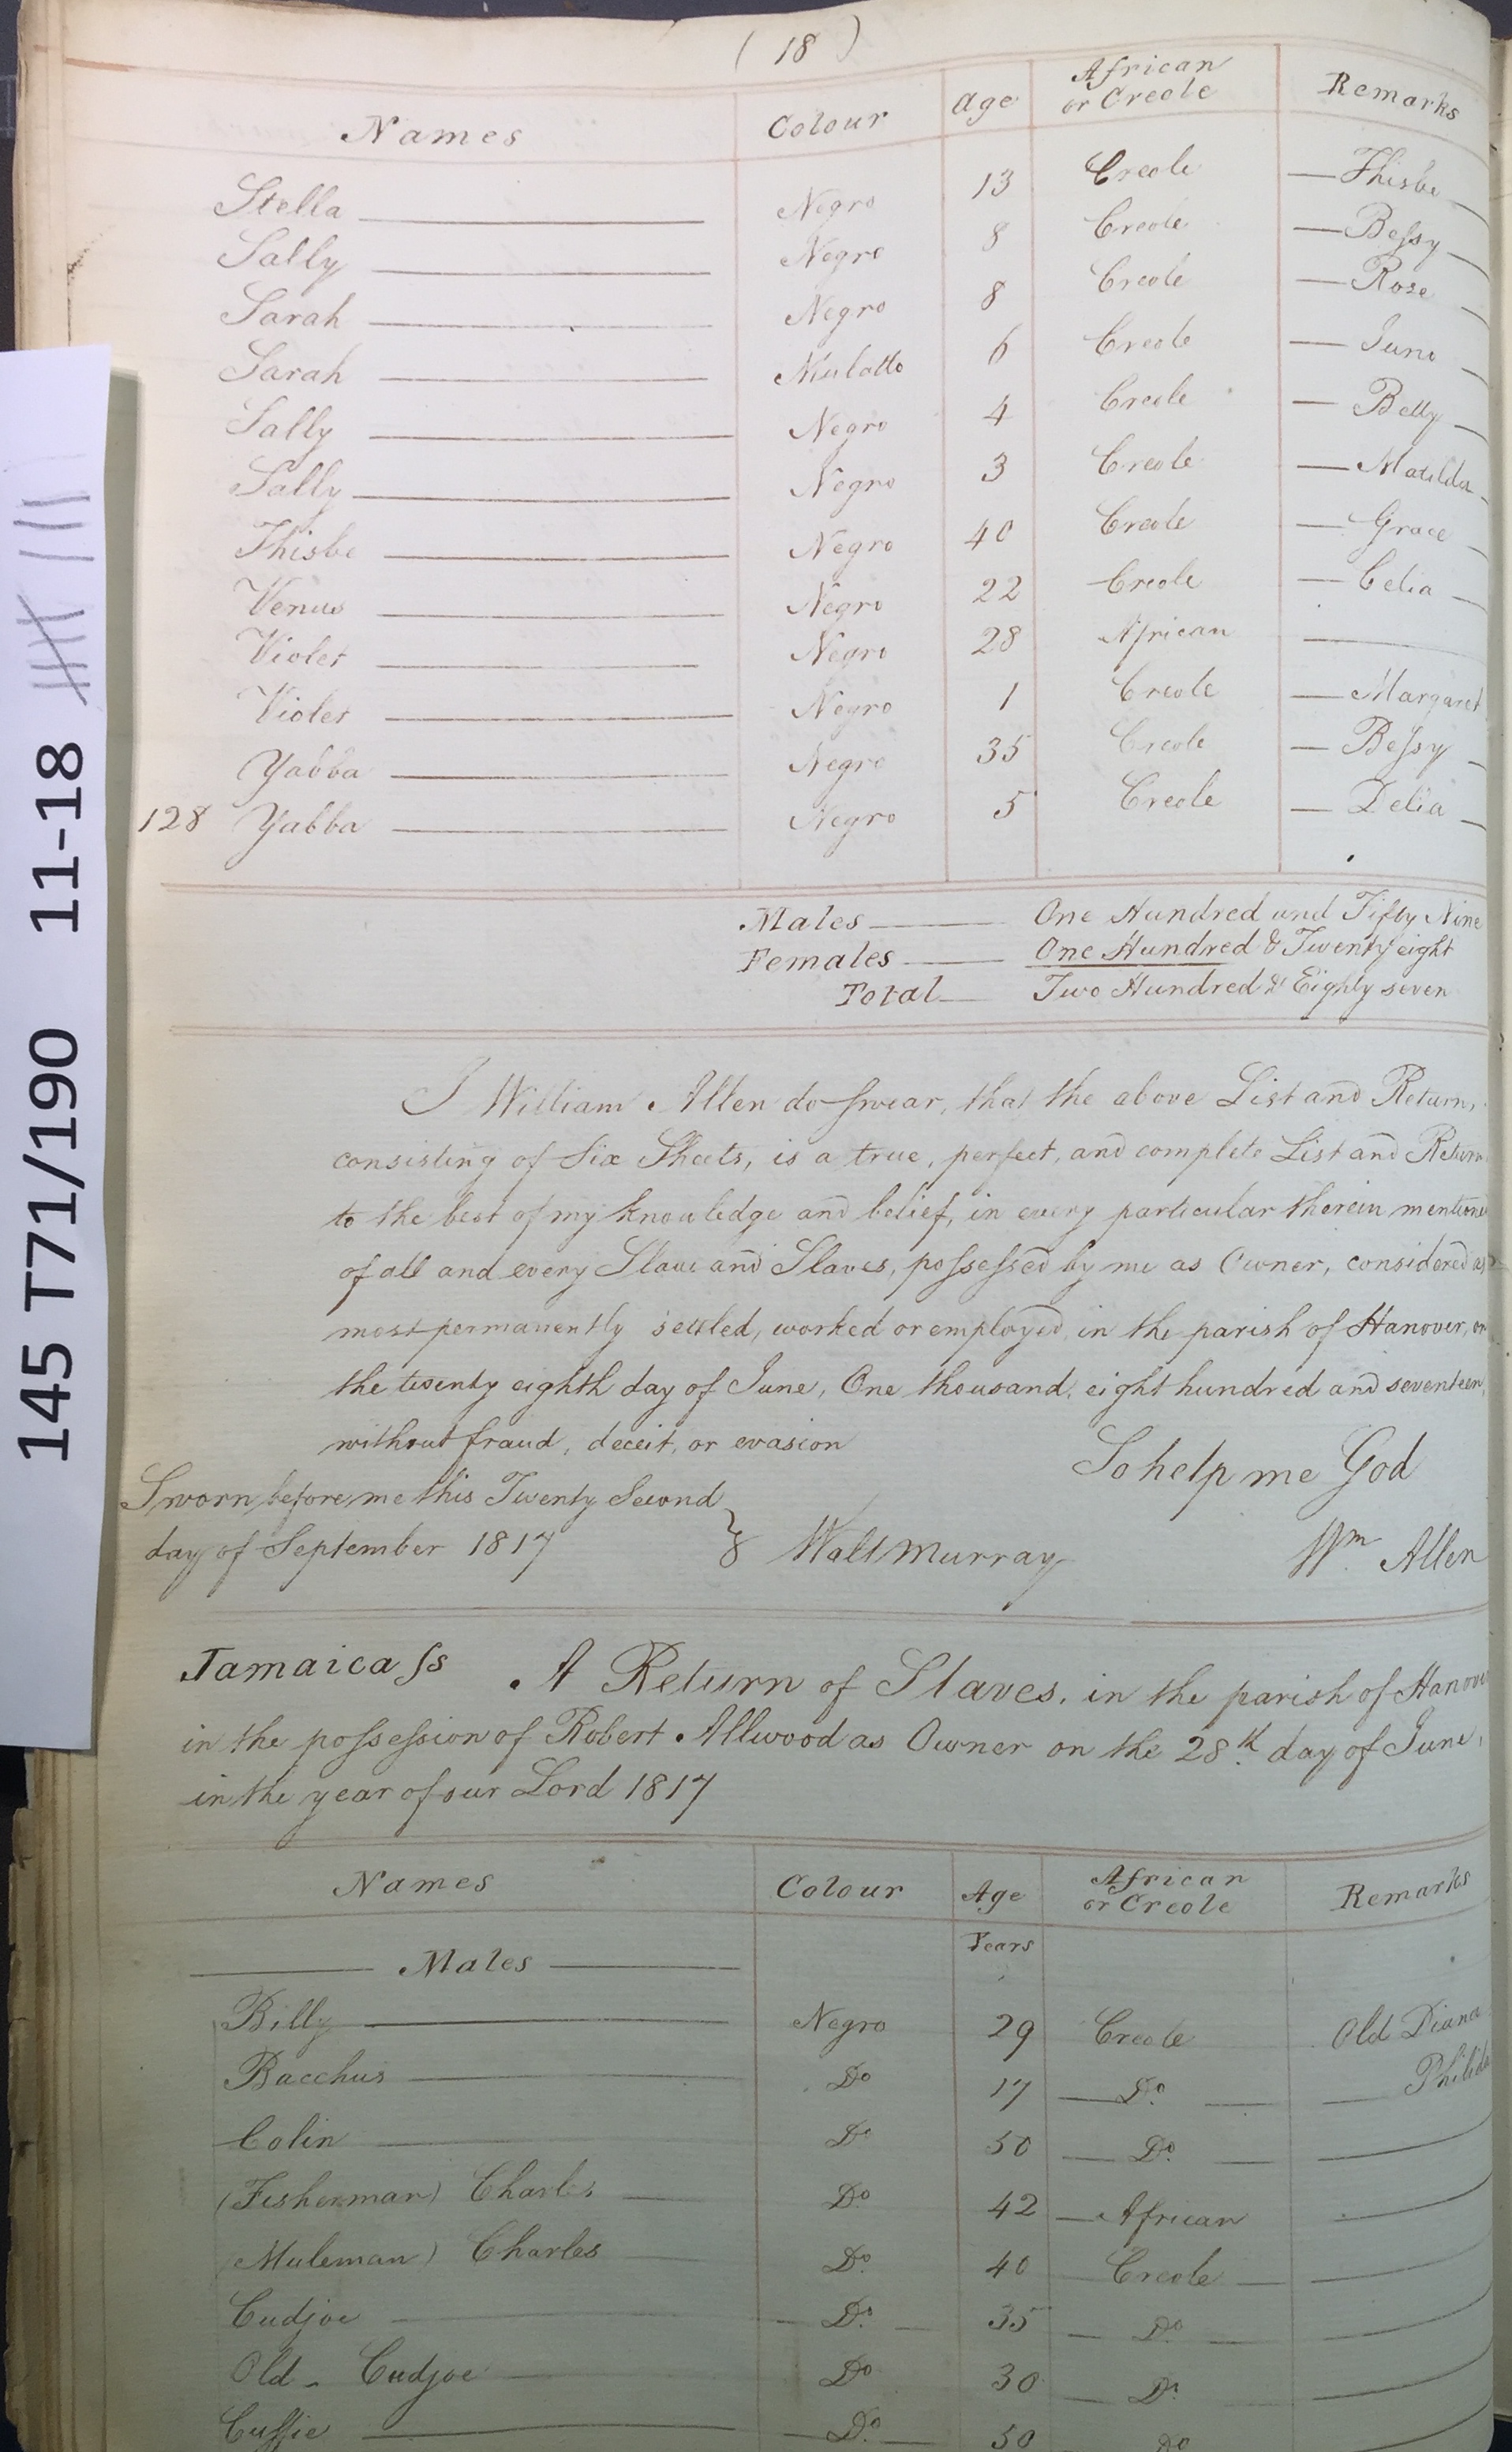 ( 18 )
Names Colour Age African or Creole Remarks
Stella Negro 13 Creole Thisbe
Sally Negro 8 Creole Beſsy
Sarah Negro 8 Creole Rose
Sarah Mulatto 6 Creole Juno
Sally Negro 4 Creole Betty
Sally Negro 3 Creole Matilda
Thisbe Negro 40 Creole Grace
Venus Negro 22 Creole Celia
Violet Negro 28 African
Violet Negro 1 Creole Margaret
Yabba Negro 35 Creole Beſsy
128 Yabba Negro 5 Creole Delia
Males One Hundred and Fifty Nine
Females One Hundred & Twenty eight
Total Two Hundred & Eighty seven
I William Allen do swear, that the above List and Return,
consisting of Six Sheets, is a true, perfect, and complete List and Return
to the best of my knowledge and belief, in every particular therein mentioned
of all and every Slave and Slaves, poſseſsed by me as Owner, considered as
most permanently settled, worked or employed, in the parish of Hanover, on
the twenty eighth day of June, One thousand, eight hundred and seventeen,
without fraud, deceit, or evasion
So help me God
Sworn before me this Twenty Second
day of September 1817 } Walt Murray Wm Allen
Jamaica ſs A Return of Slaves, in the parish of Hanover
in the poſseſsion of Robert Allwood as Owner on the 28th day of June,
in the year of our Lord 1817
Names Colour Age African or Creole Remarks
Years
Males
Billy Negro 29 Creole Old Diana
Bacchus Do 17 Do Philida
Colin Do 50 Do
(Fisherman) Charles Do 42 African
(Muleman) Charles Do 40 Creole
Cudjoe Do 35 Do
Old Cudjoe Do 30 Do
Cuffie Do 50 Do
145 T71/190 11-18